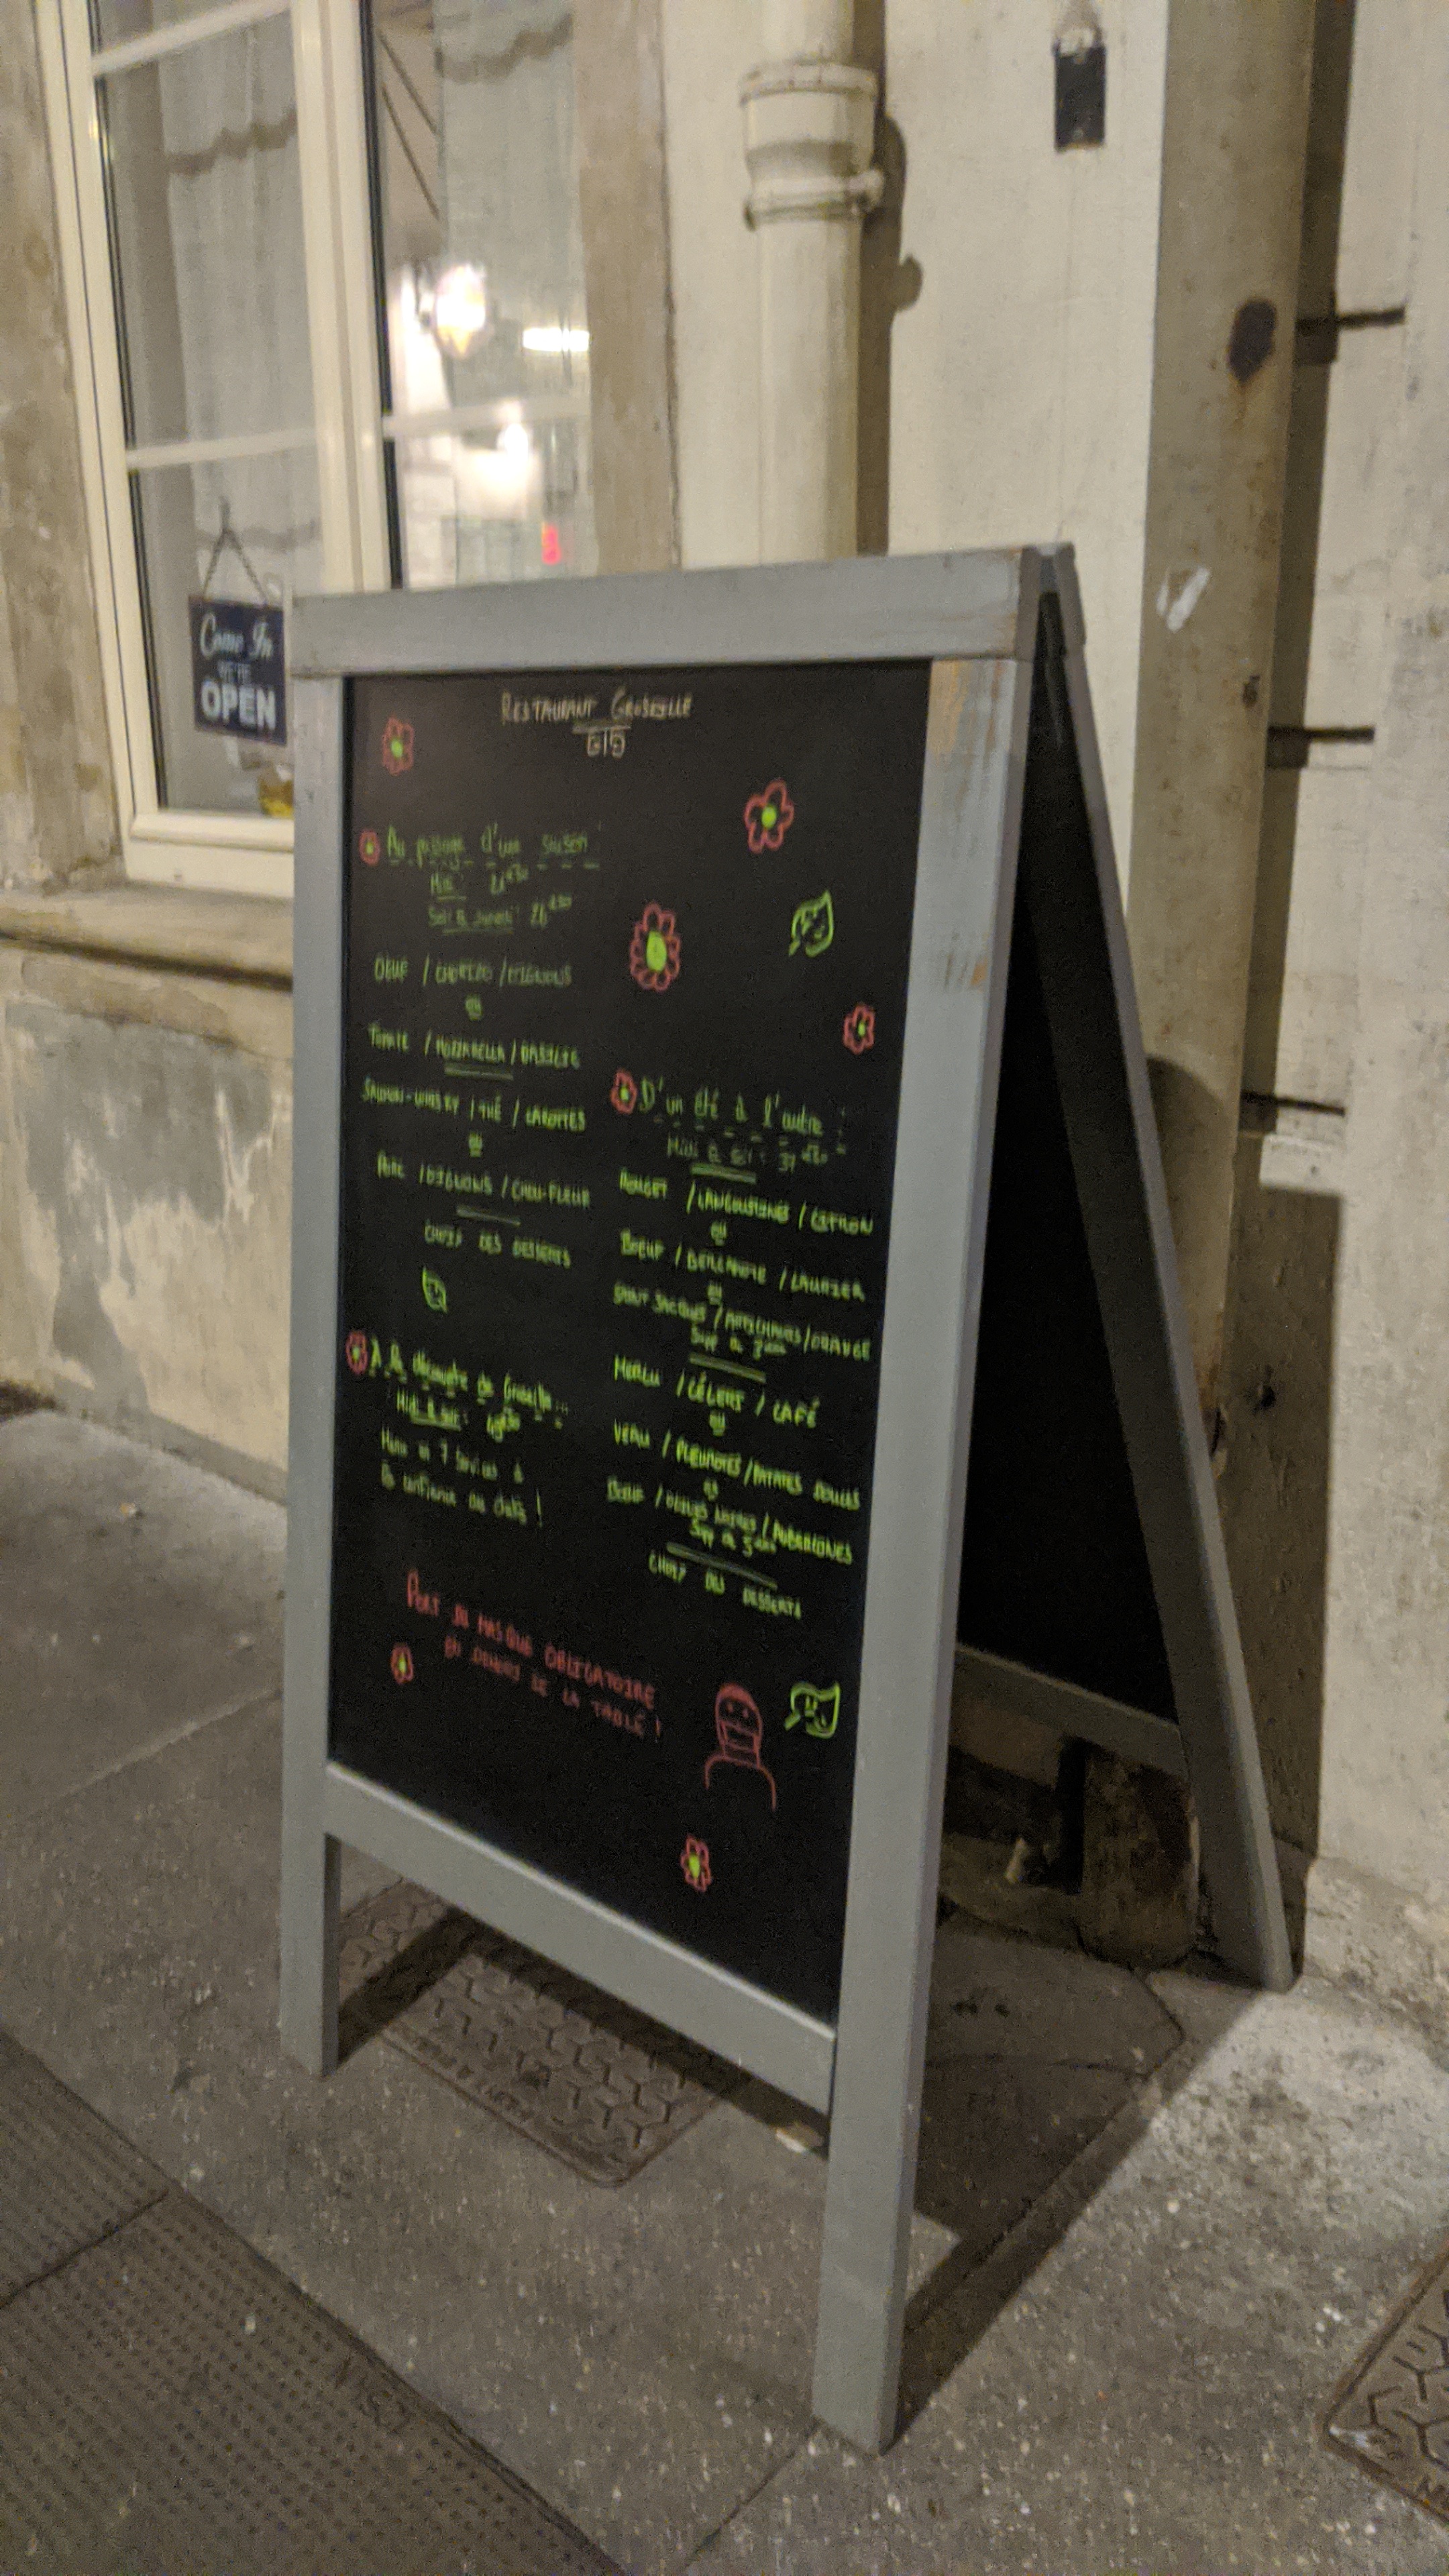 Come In
WE'RE
OPEN
RESTAURANT GROSEILLE
Au passage d'une saison :
Midi :
Soir & samedi : 26 €50
OEUF / CHORIZO / OIGNONS
OU
TOMATE / MOZZARELLA / BASILIC
SAUMON-WHISKY / THÉ / CAROTTES
OU
PORC / OIGNONS / CHOU-FLEUR
CHOIX DES DESSERTS
A la découverte de Groseille...
Midi & soir :
Menu en 7 services à
la confiance du chef !
D'un été à l'autre :
Midi & soir :
ROUGET / LANGOUSTINES / CITRON
OU
BOEUF / / LAURIER
OU
SAINT JACQUES / ARTICHAUTS / ORANGE
Supp de
MERLU / CÉLERIS / CAFÉ
OU
VEAU / PLEUROTES / PATATES DOUCES
OU
/ OLIVES NOIRES / AUBERGINES
Supp de
CHOIX DES DESSERTS
PORT DU MASQUE OBLIGATOIRE
EN DEHORS DE LA TABLE !